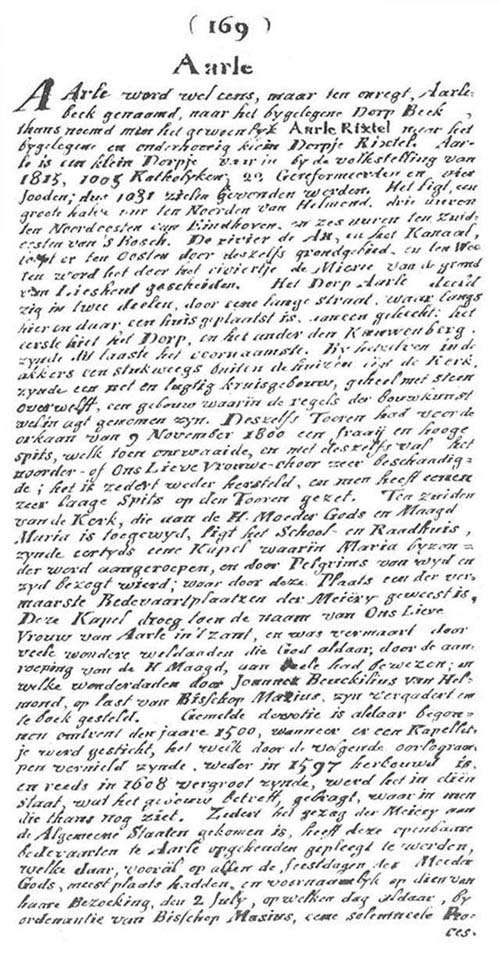 ( 169 )
Aarle
AArle word wel eens, maar ten onregt, Aarle-
beek genaamd, naar het bygelegene Dorp Beek,
thans noemd men het gewoonlyk Aarle Rixtel naar het
bygelegene en onderhoorig klein Dorpje Rixtel. Aar-
le is een klein Dorpje waar in by de volkstelling van
1815, 1005 Katholyken, 22 Gereformeerden en vier
Jooden; dus 1031 zielen gevonden werden. Het ligt een
groote halve uur ten Noorden van Helmond, drie uuren
ten Noordoosten van Eindhoven, en zes uuren ten Zuid-
oosten van 's Bosch. De rivier de Aa, en het Kanaal,
loopt er ten Oosten door deszelfs grondgebied, en ten Wes-
ten word het door het riviertje de van de grond
van Lieshout gescheiden. Het Dorp Aarle deeld
zig in twee deelen, door eene lange straat, waar langs
hier en daar, een huis geplaatst is, aan een gehecht; het
eerste hiet het Dorp, en het ander den Kauwenberg,
zynde dit laaste het voornaamste. By hetzelven in de
akkers een stuk weegs buiten de huizen ligt de Kerk,
zynde een net en lugtig kruisgebouw, geheel met steen
overwelft, een gebouw waarin de regels der bouwkunst
wel in agt genomen zyn. Deszelfs Tooren had voor de
orkaan van 9 November 1800 een fraaij en hooge
spits, welk toen omwaaide, en met deszelfs val het
noorder- of Ons Lieve Vrouwe-choor zeer beschaadig-
de; het is zedert weder hersteld, en men heeft eenen
zeer laage Spits op den Tooren gezet. Ten zuiden
van de Kerk, die aan de H. Moeder Gods en Maagd
Maria is toegewyd, ligt het School- en Raadhuis,
zynde eertyds eene Kapel waarin Maria byzon-
der word aangeroepen, en door Pelgrims van wyd en
zyd bezogt wierd; waar door deze Plaats een der ver-
maarste Bedevaartplaatzen der Meiëry geweest is,
Deze Kapel droeg toen de naam van Ons Lieve
Vrouw van Aarle in 't zant, en was vermaart door
veele wondere weldaaden die God aldaar, door de aan-
roeping van de H. Maagd, aan veele had bewezen; en
welke wonderdaden door Joannes Beuckilius van Hel-
mond, op last van Bisschop Masius, zyn vergaderd en
te boek gesteld. Gemelde devotie is aldaar begon-
nen omtrent den jaare 1500, wanneer er een Kapellet-
je werd gestigt, het welk door de volgende oorlogram-
pen vernield zynde, weder in 1597 herbouwd is,
en reeds in 1608 vergroot zynde, werd het in dien
staat, wat het gebouw betreft, gebragt, waar in men
die thans nog ziet. Zedert het gezag der Meiëry aan
de Algemeene Staaten gekomen is, heeft deze openbaare
bedevaarten te Aarle opgehouden gepleegt te werden,
welke daar, vooräl op allen de feestdagen der Moeder
Gods, meest plaats hadden, en voornaamlyk op dien van
haare Bezoeking, den 2 July, op welken dag aldaar, by
ordenantie van Bisschop Masius, eene solemneele Pro-
ces-